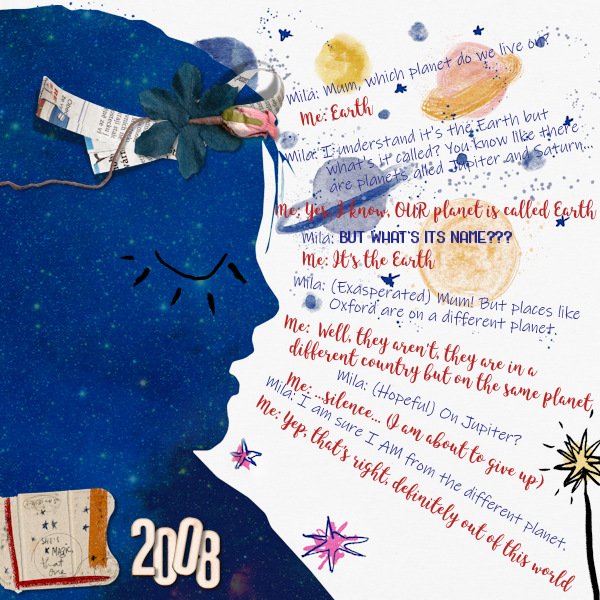 Mila: Mum, which planet do we live on?
Me: Earth
Mila: I understand it's the Earth but
what's it called? You know like there
are planets alled Jupiter and Saturn...
Me: Yes, I know, OUR planet is called Earth
Mila: BUT WHAT'S ITS NAME???
Me: It's the Earth
Mila: (Exasperated) Mum! But places like
Oxford are on a different planet.
Me: Well, they aren't, they are in a
different country but on the same planet,
Mila: (Hopeful) On Jupiter?
Me: ...silence... (I am about to give up)
Mila: I am sure I AM from the different planet.
Me: Yep, that's right, definitely out of this world
SHE'S
MAGIC
that
one
2008